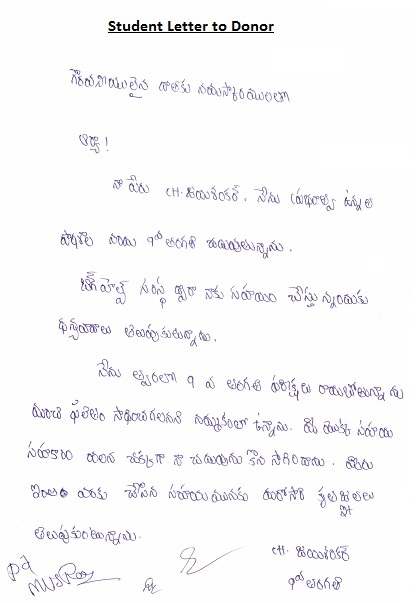 Student Letter to Donor
గౌరవనీయులైన దాతకు నమస్కారములతో
ఆర్యా!
నా పేరు CH. జయశంకర్. నేను ప్రభుత్వ ఉన్నత
పాఠశాల నందు 9వ తరగతి చదువుతున్నాను.
బిగ్ హెల్ప్ సంస్థ ద్వారా నాకు సహాయం చేస్తున్నందుకు
ధన్యవాదాలు తెలుపుకుంటున్నాను.
నేను త్వరలో 9 వ తరగతి పరీక్షలు రాయబోతున్నాను
మంచి ఫలితం సాధించగలనని నమ్మకంతో ఉన్నాను. మీ యొక్క సహాయ
సహకారం వలన చక్కగా నా చదువును కొన సాగించాను. మీరు
ఇంత వరకు చేసిన సహాయమునకు మరోసారి కృతజ్ఞతలు
తెలుపుకుంటున్నాను.
CH. జయశంకర్
9వ తరగతి